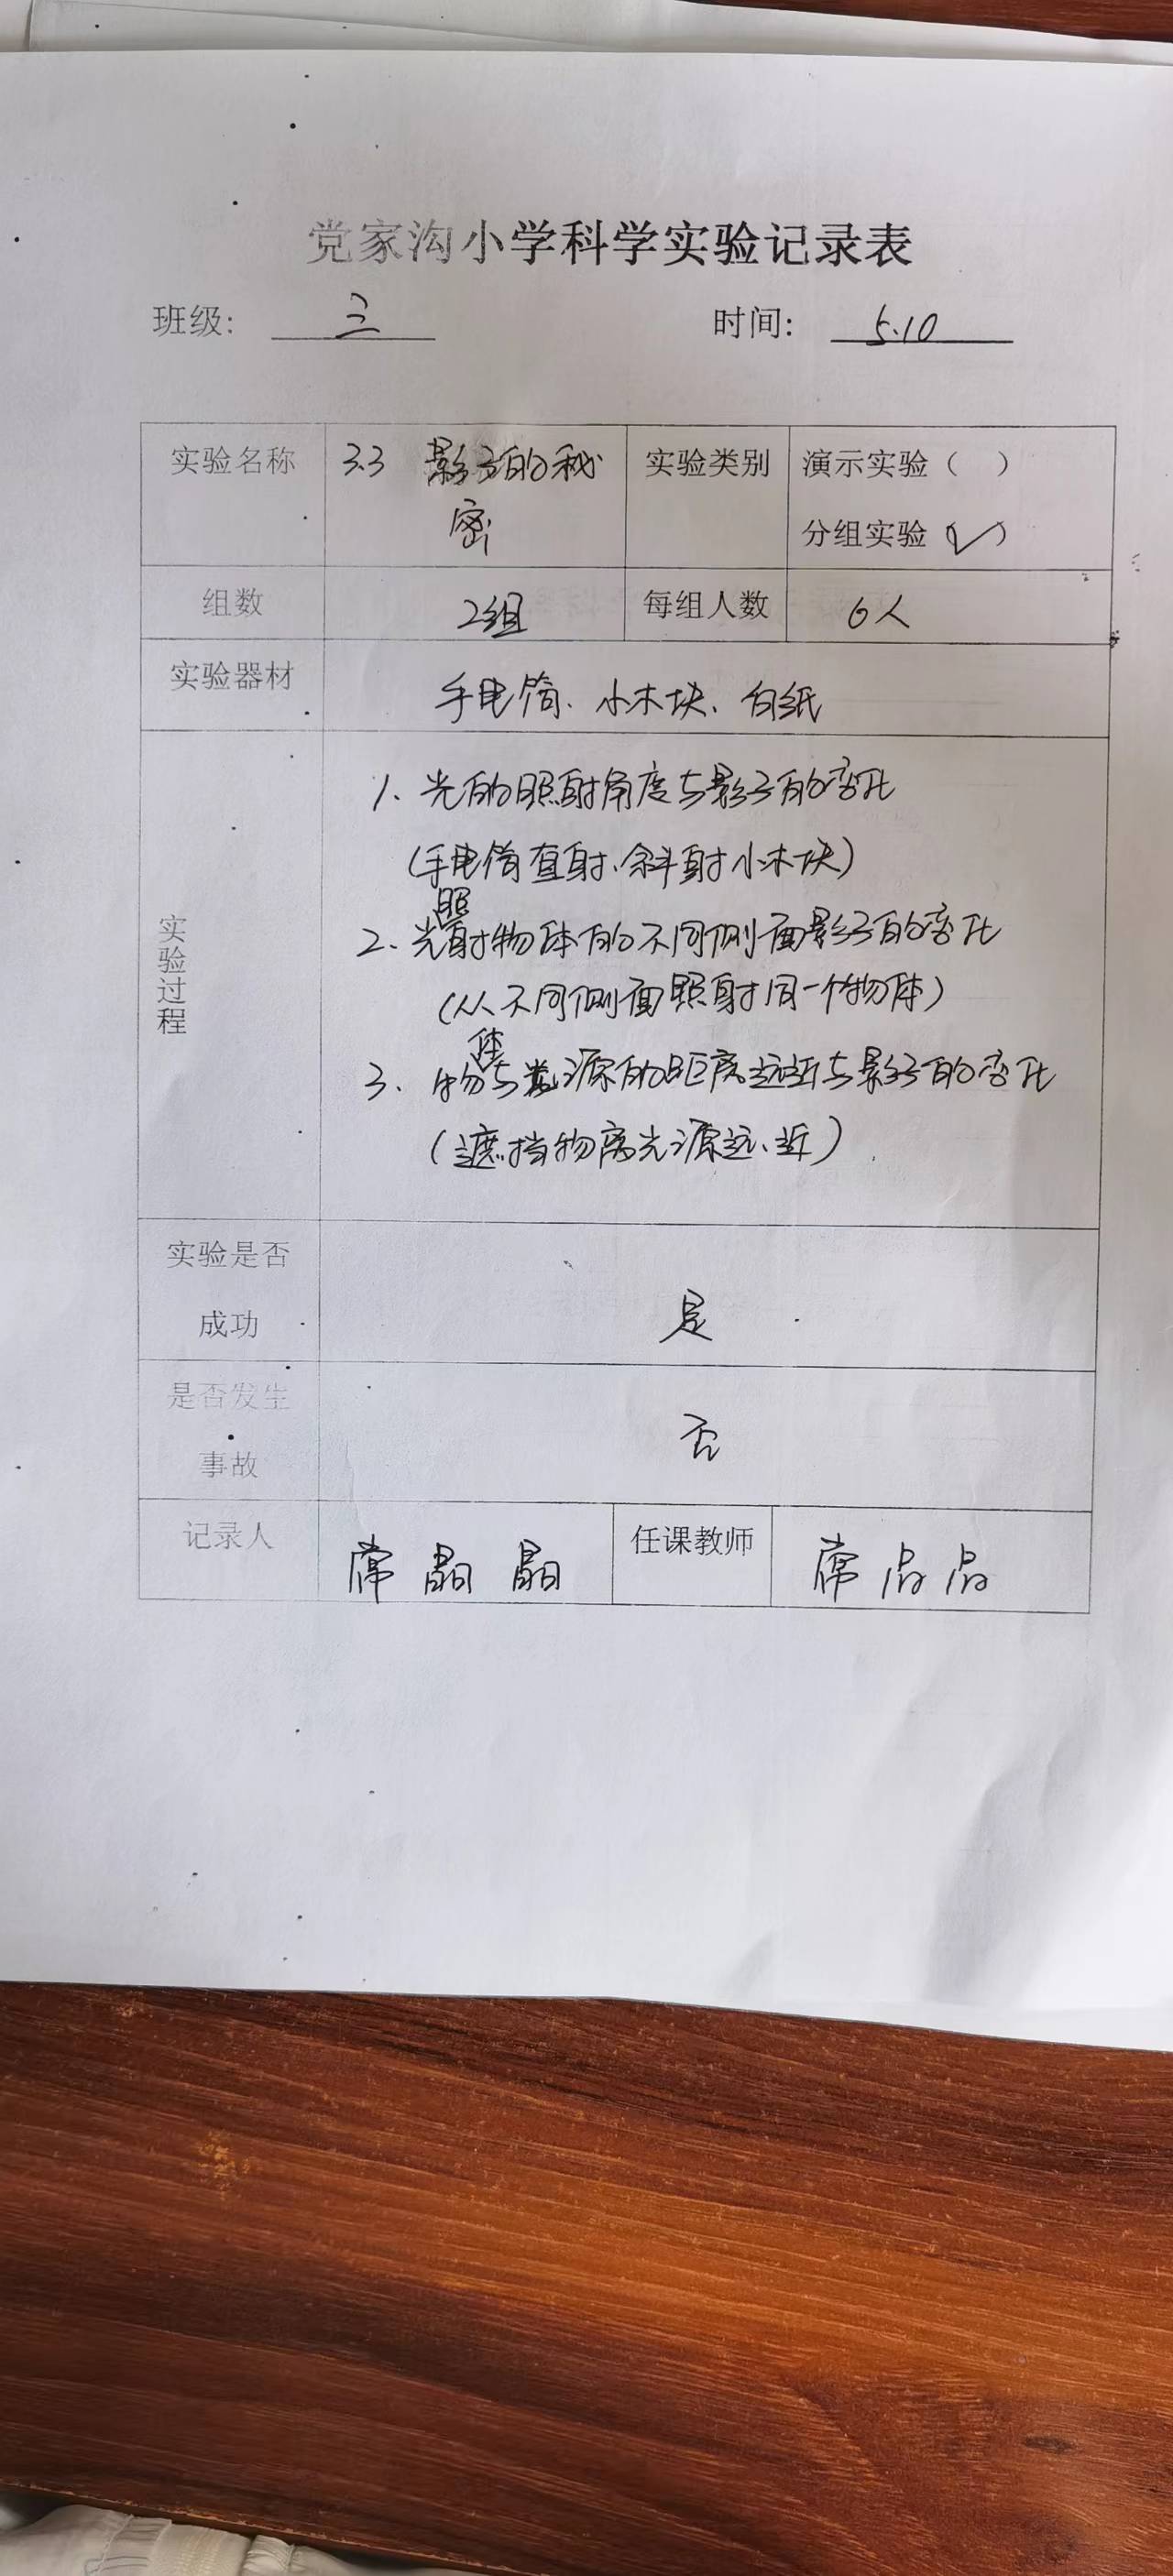 党家沟小学科学实验记录表
班级: 三 时间: 5.10
实验名称 3.3 影子的秘密 实验类别 演示实验( )
分组实验(✓)
组数 2组 每组人数 6人
实验器材 手电筒、小木块、白纸
实验过程
1、光的照射角度与影子的变化
(手电筒直射、斜射小木块)
2、光照射物体的不同侧面影子的变化
(从不同侧面照射同一个物体)
3、物体与光源的距离远近与影子的变化
(遮挡物离光源远、近)
实验是否
成功 是
是否发生
事故 否
记录人 席晶晶 任课教师 席晶晶